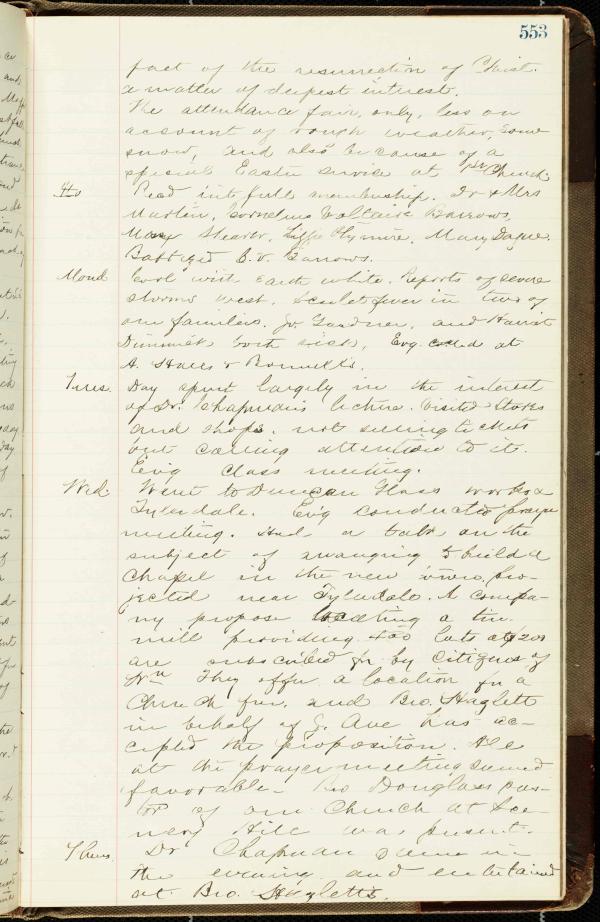 553
fact of the resurrection of Christ.
a matter of deepest interest.
The attendance fair, only, less on
account of rough weather, some
snow, and also because of a
special Easter service at Church.
Read into full membership. Dr & Mrs
Martin, Cornelius Voltaire Barrows,
Mary Shearer, Lizzie Hymire, Mary Dague.
Baptized C. V. Barrows.
Mond Cool with earth white. Reports of severe
storms west. Scarlet fever in two of
our families. Jo. Gardner, and Harriet
both sick, Evg. called at
A. Staces &
Tues. Day spent largely in the interest
of Dr. Chapman's lecture. Visited stores
and shops. not selling tickets
but calling attention to it.
Ev'g class meeting.
Wed. Went to Duncan Glass works &
Tylerdale. Ev'g conducted prayer
meeting. Had a talk on the
subject of arranging to build a
chapel in the new town pro-
jected near Tylerdale. A compa-
ny propose locating a tin
mill providing 400 lots at $200
are subscribed for by citizens of
Wn They offer a location for a
Church free, and Bro. Hazlett
in behalf of J. Ave has ac-
cepted the proposition. All
at the prayer meeting seemed
favorable. Bro Douglass pas-
tor of our Church at Sce-
nery Hill was present.
Thurs. Dr Chapman came in
the evening and entertained
at Bro. Hazletts.